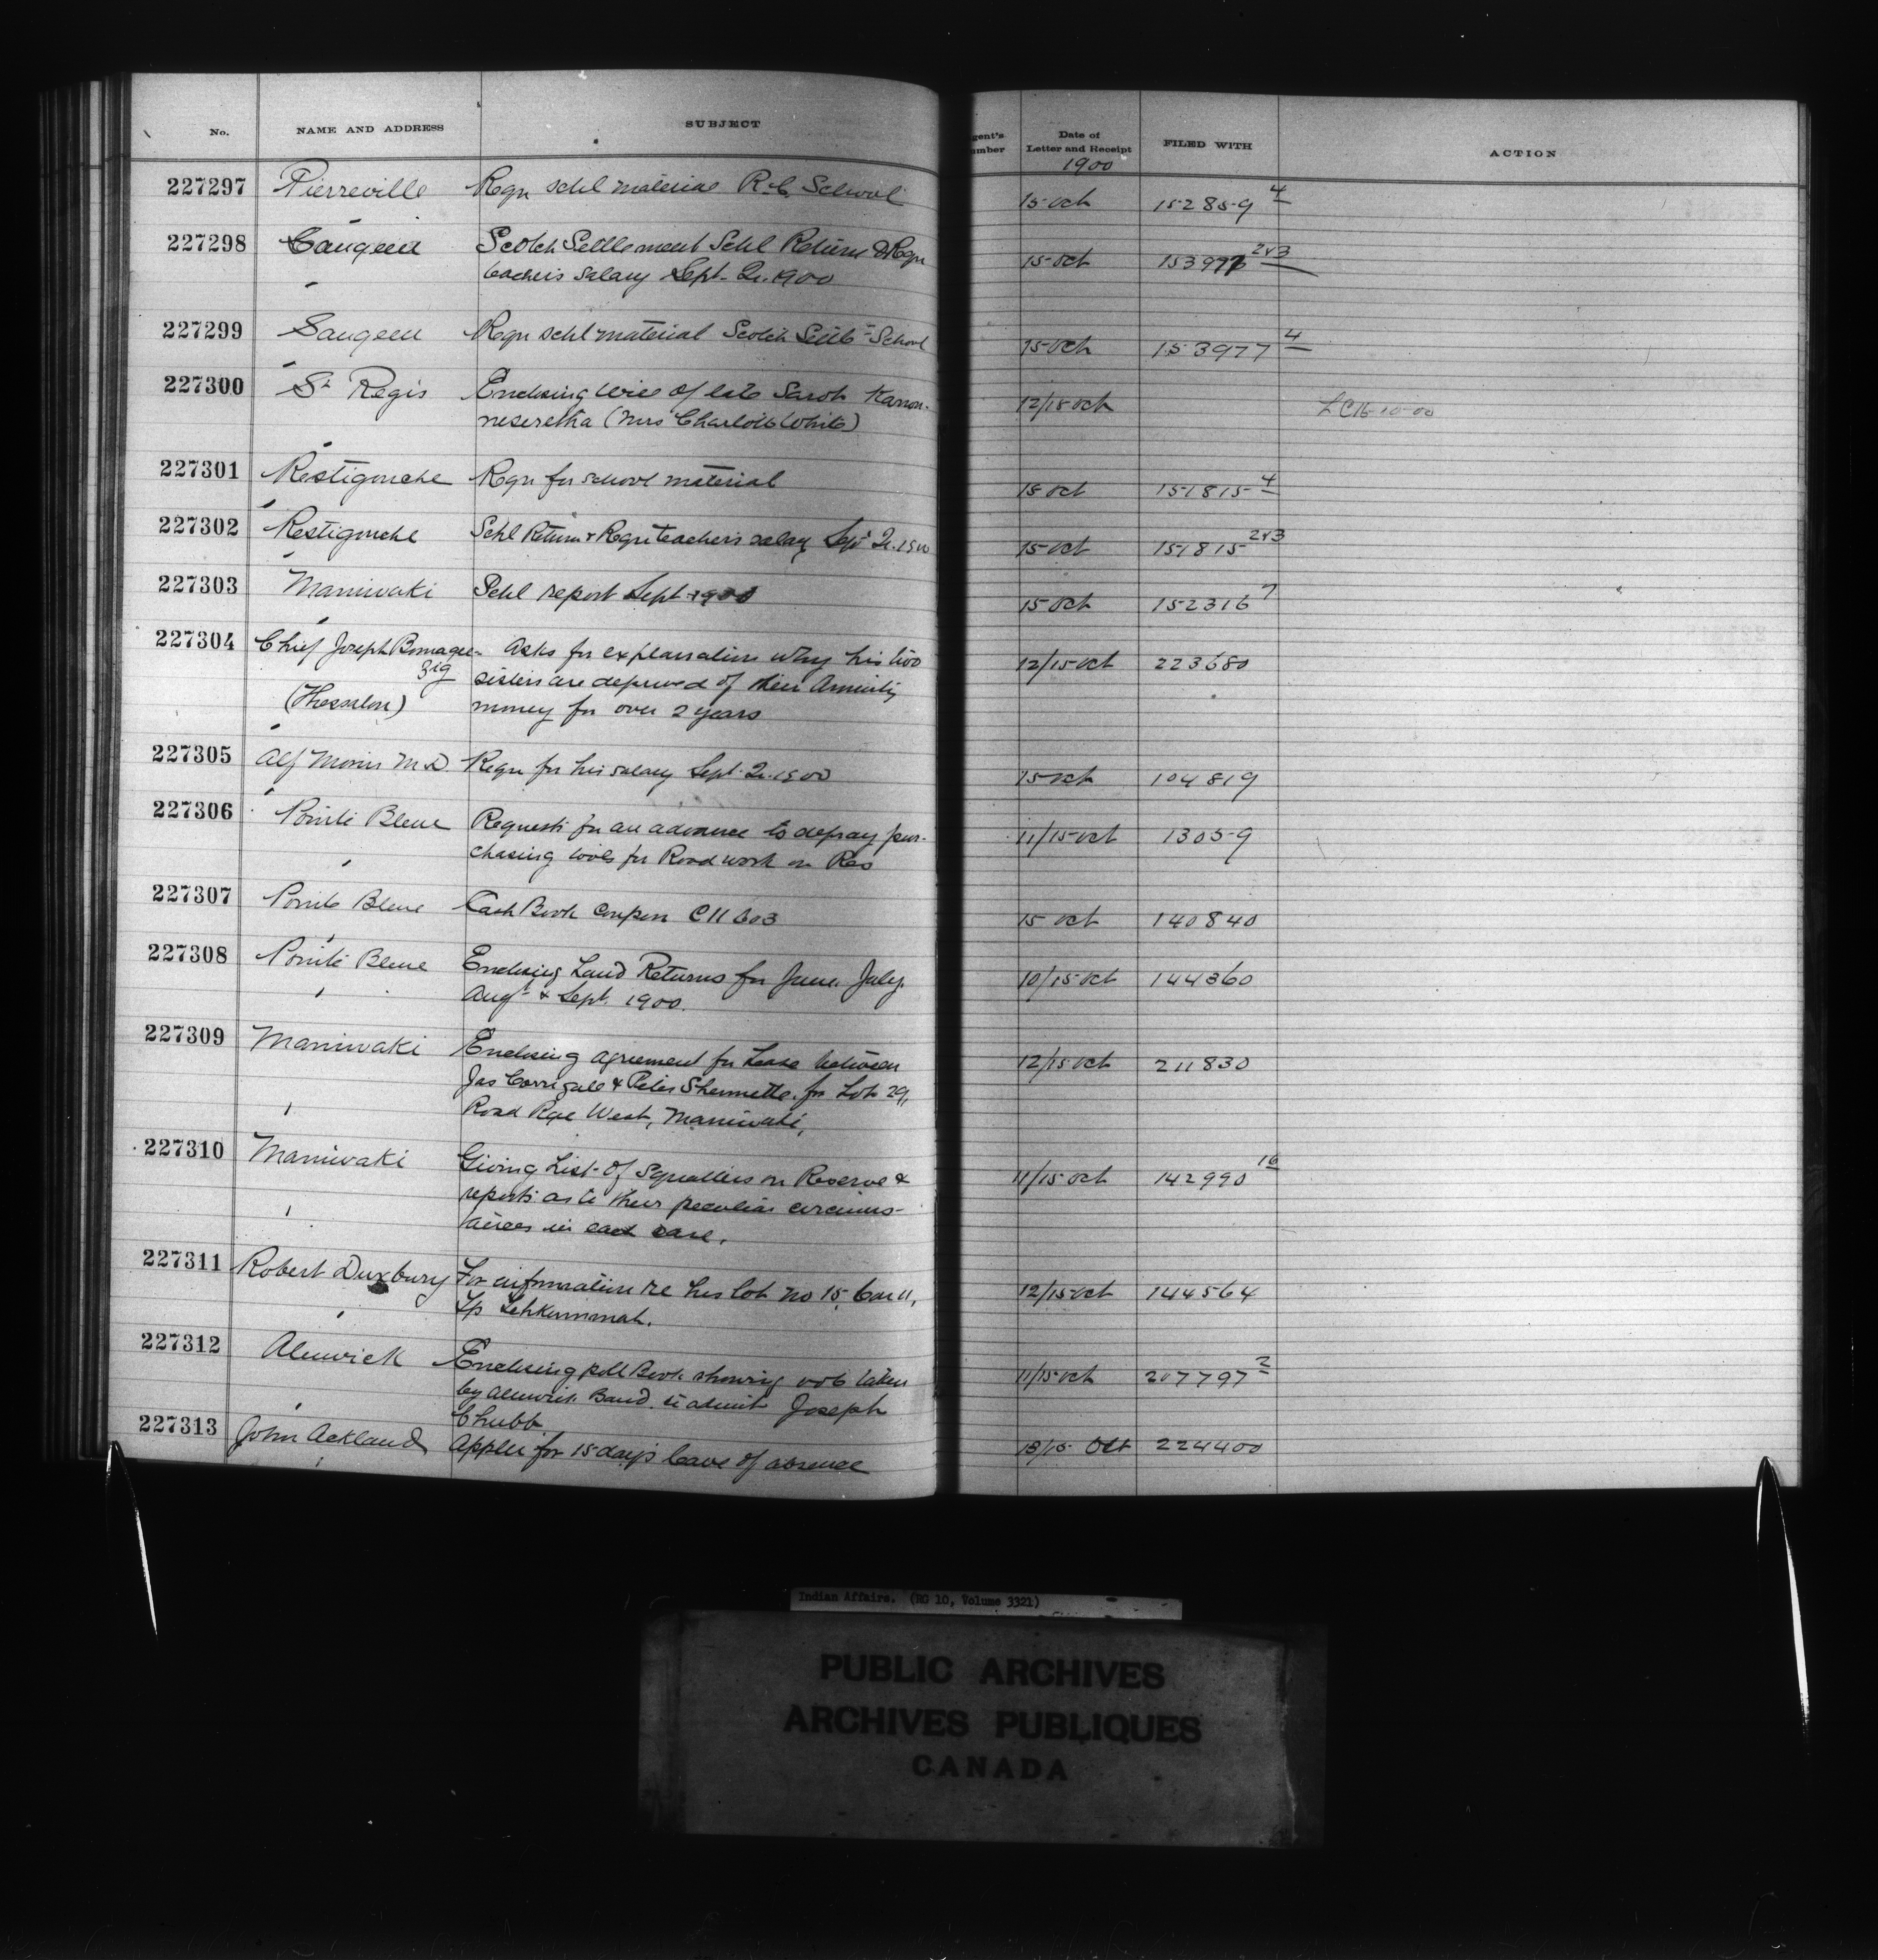 No. NAME AND ADDRESS SUBJECT gent's umber Date of Letter and Receipt FILED WITH ACTION
1900
227297 Pierreville Reqn schl material R.C. School 15 Oct 152859 4
227298 Saugeen Scotch Settlement Schl Return & Reqn 15 Oct 153977 2&3
teacher's salary Sept. Qr. 1900
227299 Saugeen Reqn schl material Scotch Settlt School 15 Oct 153977 4
227300 St Regis Enclosing Will of late Sarah Karon- 12/15 Oct
neseretha (Mrs Charlotte White)
227301 Restigouche Reqn for school material 15 Oct 151815 4
227302 Restigouche Schl Return & Reqn teacher's salary Sept Qr. 1900 15 Oct 151815 2&3
227303 Maniwaki Schl report Sept 1900 15 Oct 152316 7
227304 Chief Joseph Bmagee- Asks for explanation why his two 12/15 Oct 223680
zig sisters are deprived of their Annuity
(Thessalon) money for over 2 years
227305 Alf Morin M.D. Reqn for his salary Sept. Qr. 1900 15 Oct 104819
227306 Pointe Bleue Requests for an advance to defray pur- 11/15 Oct 13059
chasing tools for Road work on Res
227307 Pointe Bleue Cash Book Coupon C11603 15 Oct 140840
227308 Pointe Bleue Enclosing Land Returns for June. July. 10/15 Oct 144360
Augt & Sept. 1900.
227309 Maniwaki Enclosing agreement for Lease between 12/15 Oct 211830
Jas Corrigale & Peter Shennette for Lot 29,
Road Rge West, Maniwaki,
227310 Maniwaki Giving List of Squatters on Reserve & 11/15 Oct 142990 16
reports as to their peculiar circums-
tances in each case.
227311 Robert Duxbury For information re his lot No 15, Con 11, 12/15 Oct 144564
Tp Tehkummah.
227312 Alnwick Enclosing poll Book showing vote taken 11/15 Oct 207797 2
by Alnwick Band to admit Joseph
Chubb
227313 John Ackland Applies for 15 days leave of absence 13/15 Oct 224400
Indian Affairs. (RG 10, Volume 3321)
PUBLIC ARCHIVES
ARCHIVES PUBLIQUES
CANADA